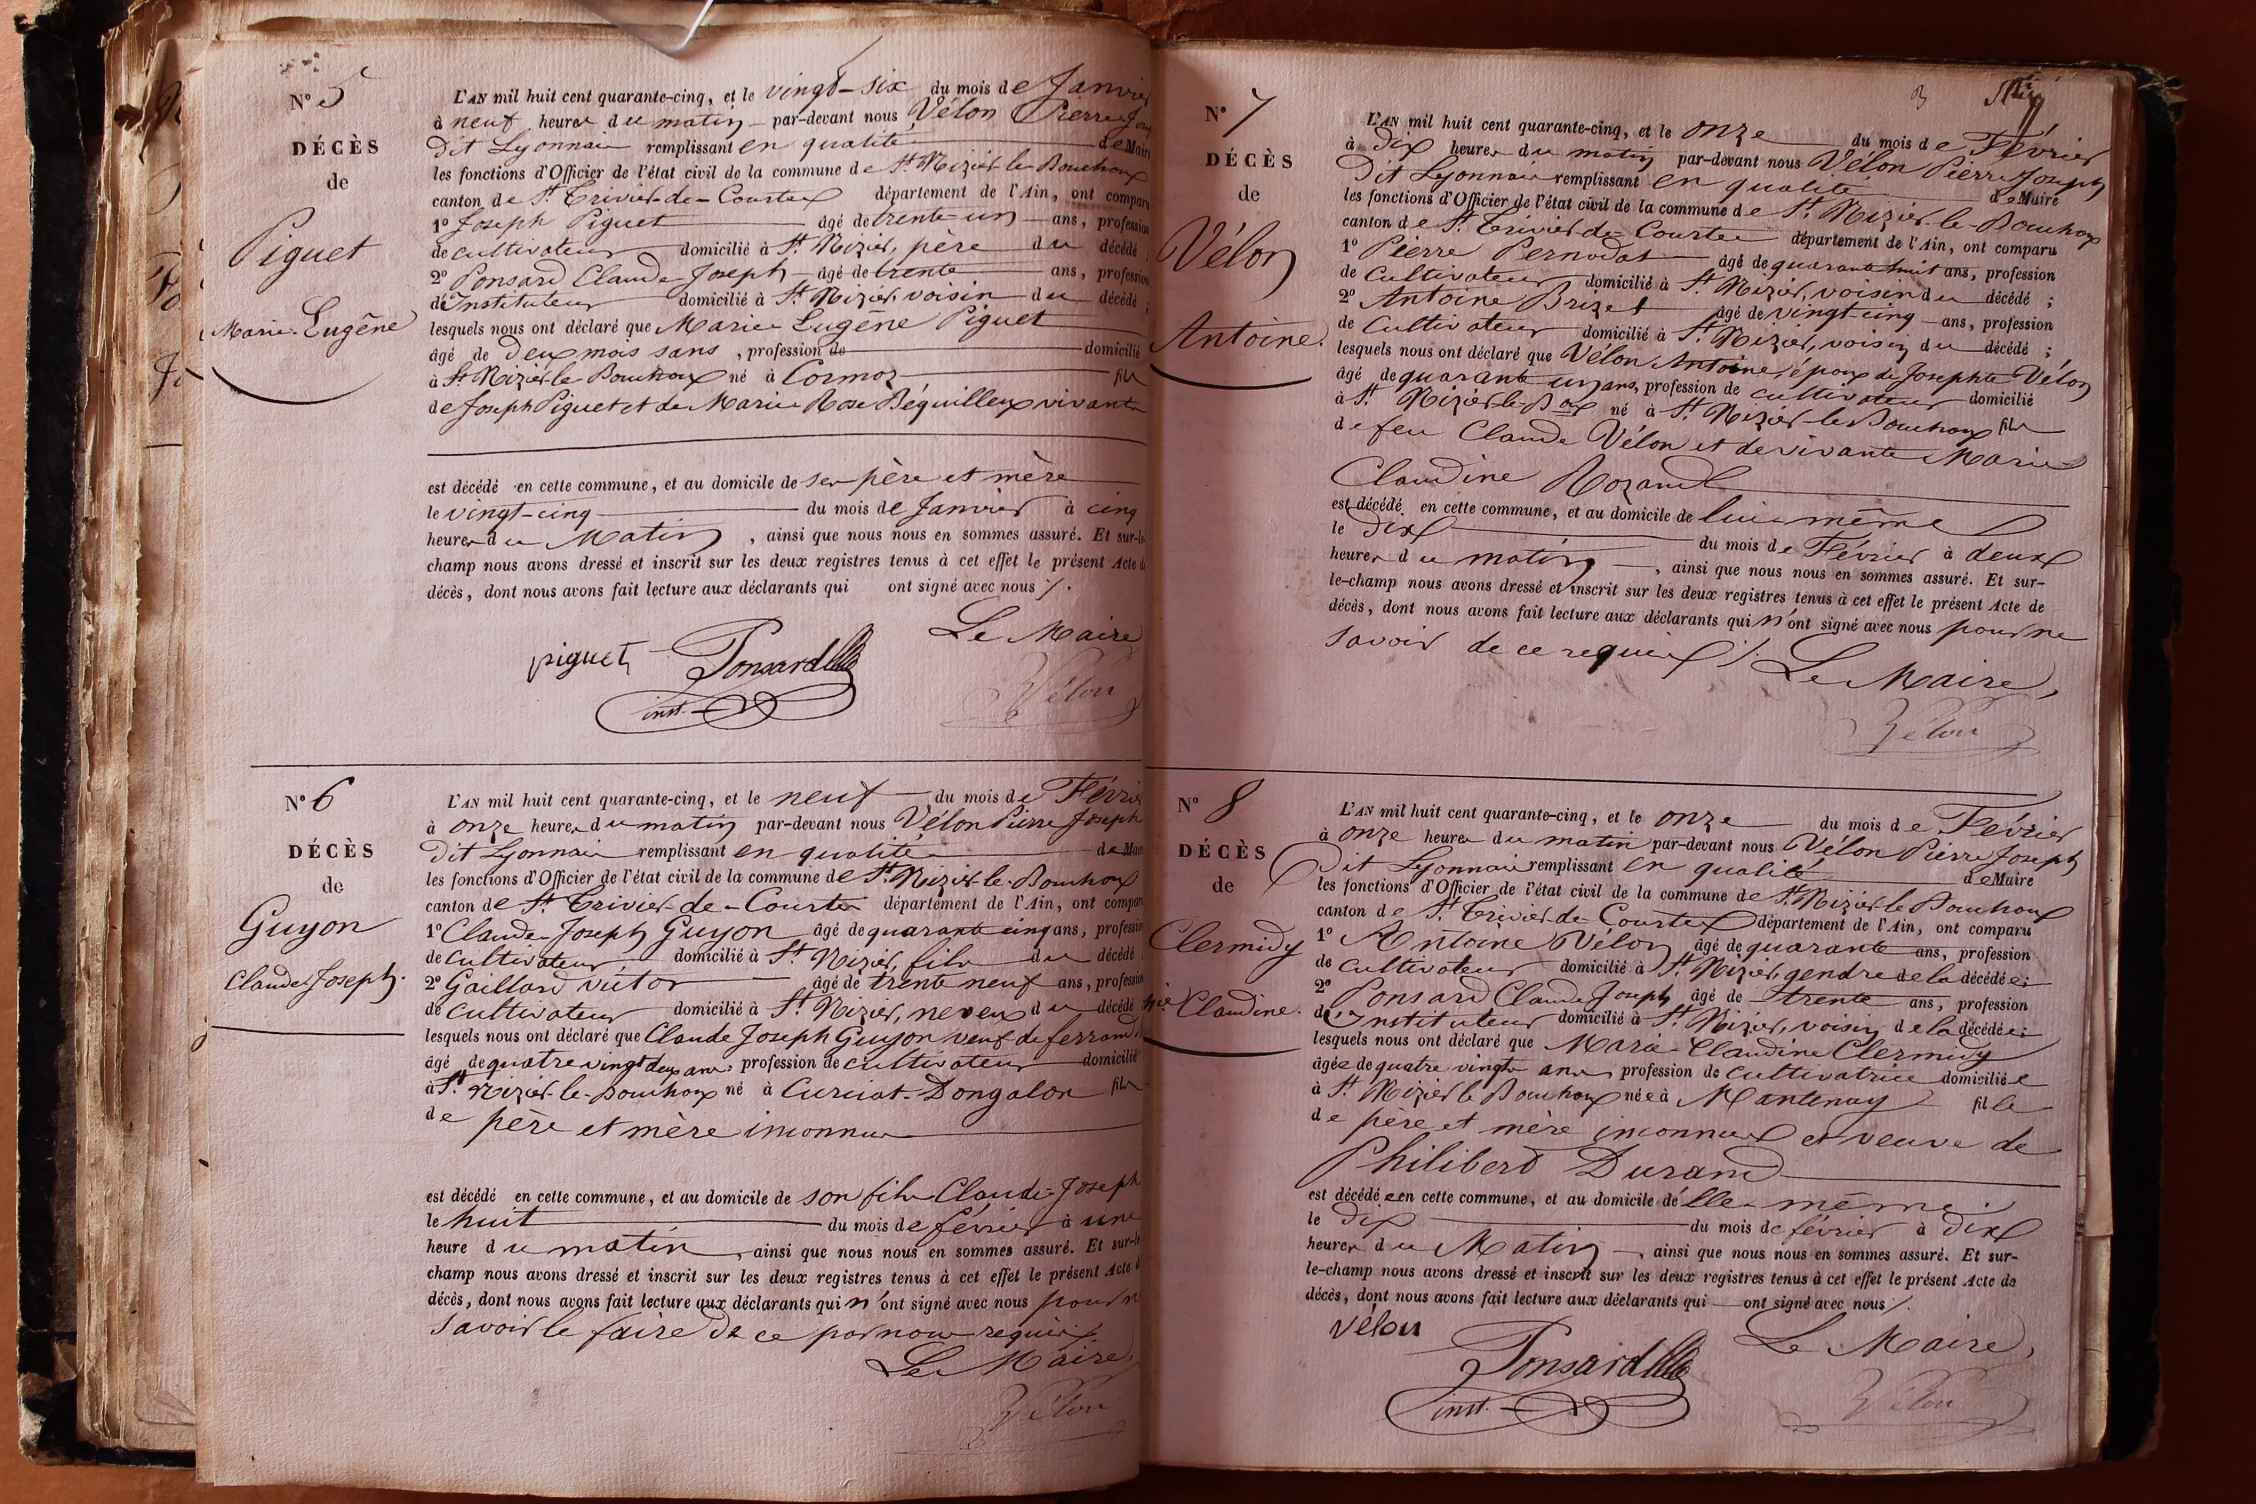 N° 5
DÉCÈS
de
Piguet
Marie Eugêne
L'AN mil huit cent quarante-cinq, et le vingt-six du mois de Janvier
à neuf heures du matin par-devant nous Vélon Pierre
dit Lyonnais remplissant en qualité de Maire
les fonctions d'Officier de l'état civil de la commune de St Nizier le Bouchoux
canton de St Trivier-de-Courtes département de l'Ain, ont comparu
1° Joseph Piguet âgé de trente-un ans, profession
de cultivateur domicilié à St Nizier, père du décédé
2° Ponsard Claude Joseph âgé de trente ans, profession
d'Instituteur domicilié à St Nizier, voisin du décédé ;
lesquels nous ont déclaré que Marie Eugêne Piguet
âgé de deux mois sans , profession de domicilié
à St Nizier le Bouchoux né à Cormoz fils
de Joseph Piguet et de Marie Rose Béguilleux vivants
est décédé en cette commune, et au domicile de ses père et mère
le vingt-cinq du mois de Janvier à cinq
heures du Matin , ainsi que nous nous en sommes assuré. Et sur-le-
champ nous avons dressé et inscrit sur les deux registres tenus à cet effet le présent Acte de
décès, dont nous avons fait lecture aux déclarants qui ont signé avec nous ./.
Le Maire
piguet Ponsard Vélon
inst.
N° 6
DÉCÈS
de
Guyon
Claude Joseph.
L'AN mil huit cent quarante-cinq, et le neuf du mois de Février
à onze heures du matin par-devant nous Vélon Pierre Joseph
dit Lyonnais remplissant en qualité de Maire
les fonctions d'Officier de l'état civil de la commune de St Nizier-le-Bouchoux
canton de St Trivier-de-Courtes département de l'Ain, ont comparu
1° Claude Joseph Guyon âgé de quarante cinq ans, profession
de cultivateur domicilié à St Nizier, fils du décédé
2° Gaillard victor âgé de trente neuf ans, profession
de cultivateur domicilié à St Nizier, neveu du décédé
lesquels nous ont déclaré que Claude Joseph Guyon veuf de ferrand
âgé de quatre vingt deux ans, profession de cultivateur domicilié
à St Nizier-le-Bouchoux né à Curciat-Dongalon fils
de père et mère inconnus
est décédé en cette commune, et au domicile de son fils Claude-Joseph
le huit du mois de février à une
heure du matin , ainsi que nous nous en sommes assuré. Et sur-le-
champ nous avons dressé et inscrit sur les deux registres tenus à cet effet le présent Acte de
décès, dont nous avons fait lecture aux déclarants qui n'ont signé avec nous pour ne
savoir le faire de ce par nous requis.
Le Maire,
Vélon
3
N° 7
DÉCÈS
de
Vélon
Antoine.
L'AN mil huit cent quarante-cinq, et le onze du mois de Février
à dix heures du matin par-devant nous Vélon Pierre Joseph
dit Lyonnais remplissant en qualité de Maire
les fonctions d'Officier de l'état civil de la commune de St Nizier-le-Bouchoux
canton de St Trivier-de-Courtes département de l'Ain, ont comparu
1° Pierre Pernodat âgé de quarante huit ans, profession
de Cultivateur domicilié à St Nizier, voisin du décédé ;
2° Antoine Brizet âgé de vingt-cinq ans, profession
de Cultivateur domicilié à St Nizier, voisin du décédé ;
lesquels nous ont déclaré que Vélon Antoine, époux de Josephte Vélon
âgé de quarante un ans, profession de cultivateur domicilié
à St Nizier-le-Boux né à St Nizier-le-Bouchoux fils
de feu Claude Vélon et de vivante Marie
Claudine Rozand
est décédé en cette commune, et au domicile de lui-même
le dix du mois de Février à deux
heures du matin , ainsi que nous nous en sommes assuré. Et sur-
le-champ nous avons dressé et inscrit sur les deux registres tenus à cet effet le présent Acte de
décès, dont nous avons fait lecture aux déclarants qui n'ont signé avec nous pour ne
savoir de ce requis ./.
Le Maire,
Vélon
N° 8
DÉCÈS
de
Clermidy
Claudine.
L'AN mil huit cent quarante-cinq, et le onze du mois de Février
à onze heures du matin par-devant nous Vélon Pierre Joseph
dit Lyonnais remplissant en qualité de Maire
les fonctions d'Officier de l'état civil de la commune de St Nizier le Bouchoux
canton de St Trivier-de-Courtes département de l'Ain, ont comparu
1° Antoine Vélon âgé de quarante ans, profession
de cultivateur domicilié à St Nizier, gendre de la décédée ;
2° Ponsard Claude Joseph âgé de trente ans, profession
d'Instituteur domicilié à St Nizier, voisin de la décédée ;
lesquels nous ont déclaré que Marie-Claudine Clermidy
âgée de quatre vingts ans, profession de cultivatrice domiciliée
à St Nizier le Bouchoux née à Mantenay fille
de père et mère inconnus et veuve de
Philibert Durand
est décédée en cette commune, et au domicile d'elle même
le dix du mois de février à dix
heures du Matin , ainsi que nous nous en sommes assuré. Et sur-
le-champ nous avons dressé et inscrit sur les deux registres tenus à cet effet le présent Acte de
décès, dont nous avons fait lecture aux déclarants qui ont signé avec nous ./.
vélon Ponsard Le Maire,
inst. Vélon